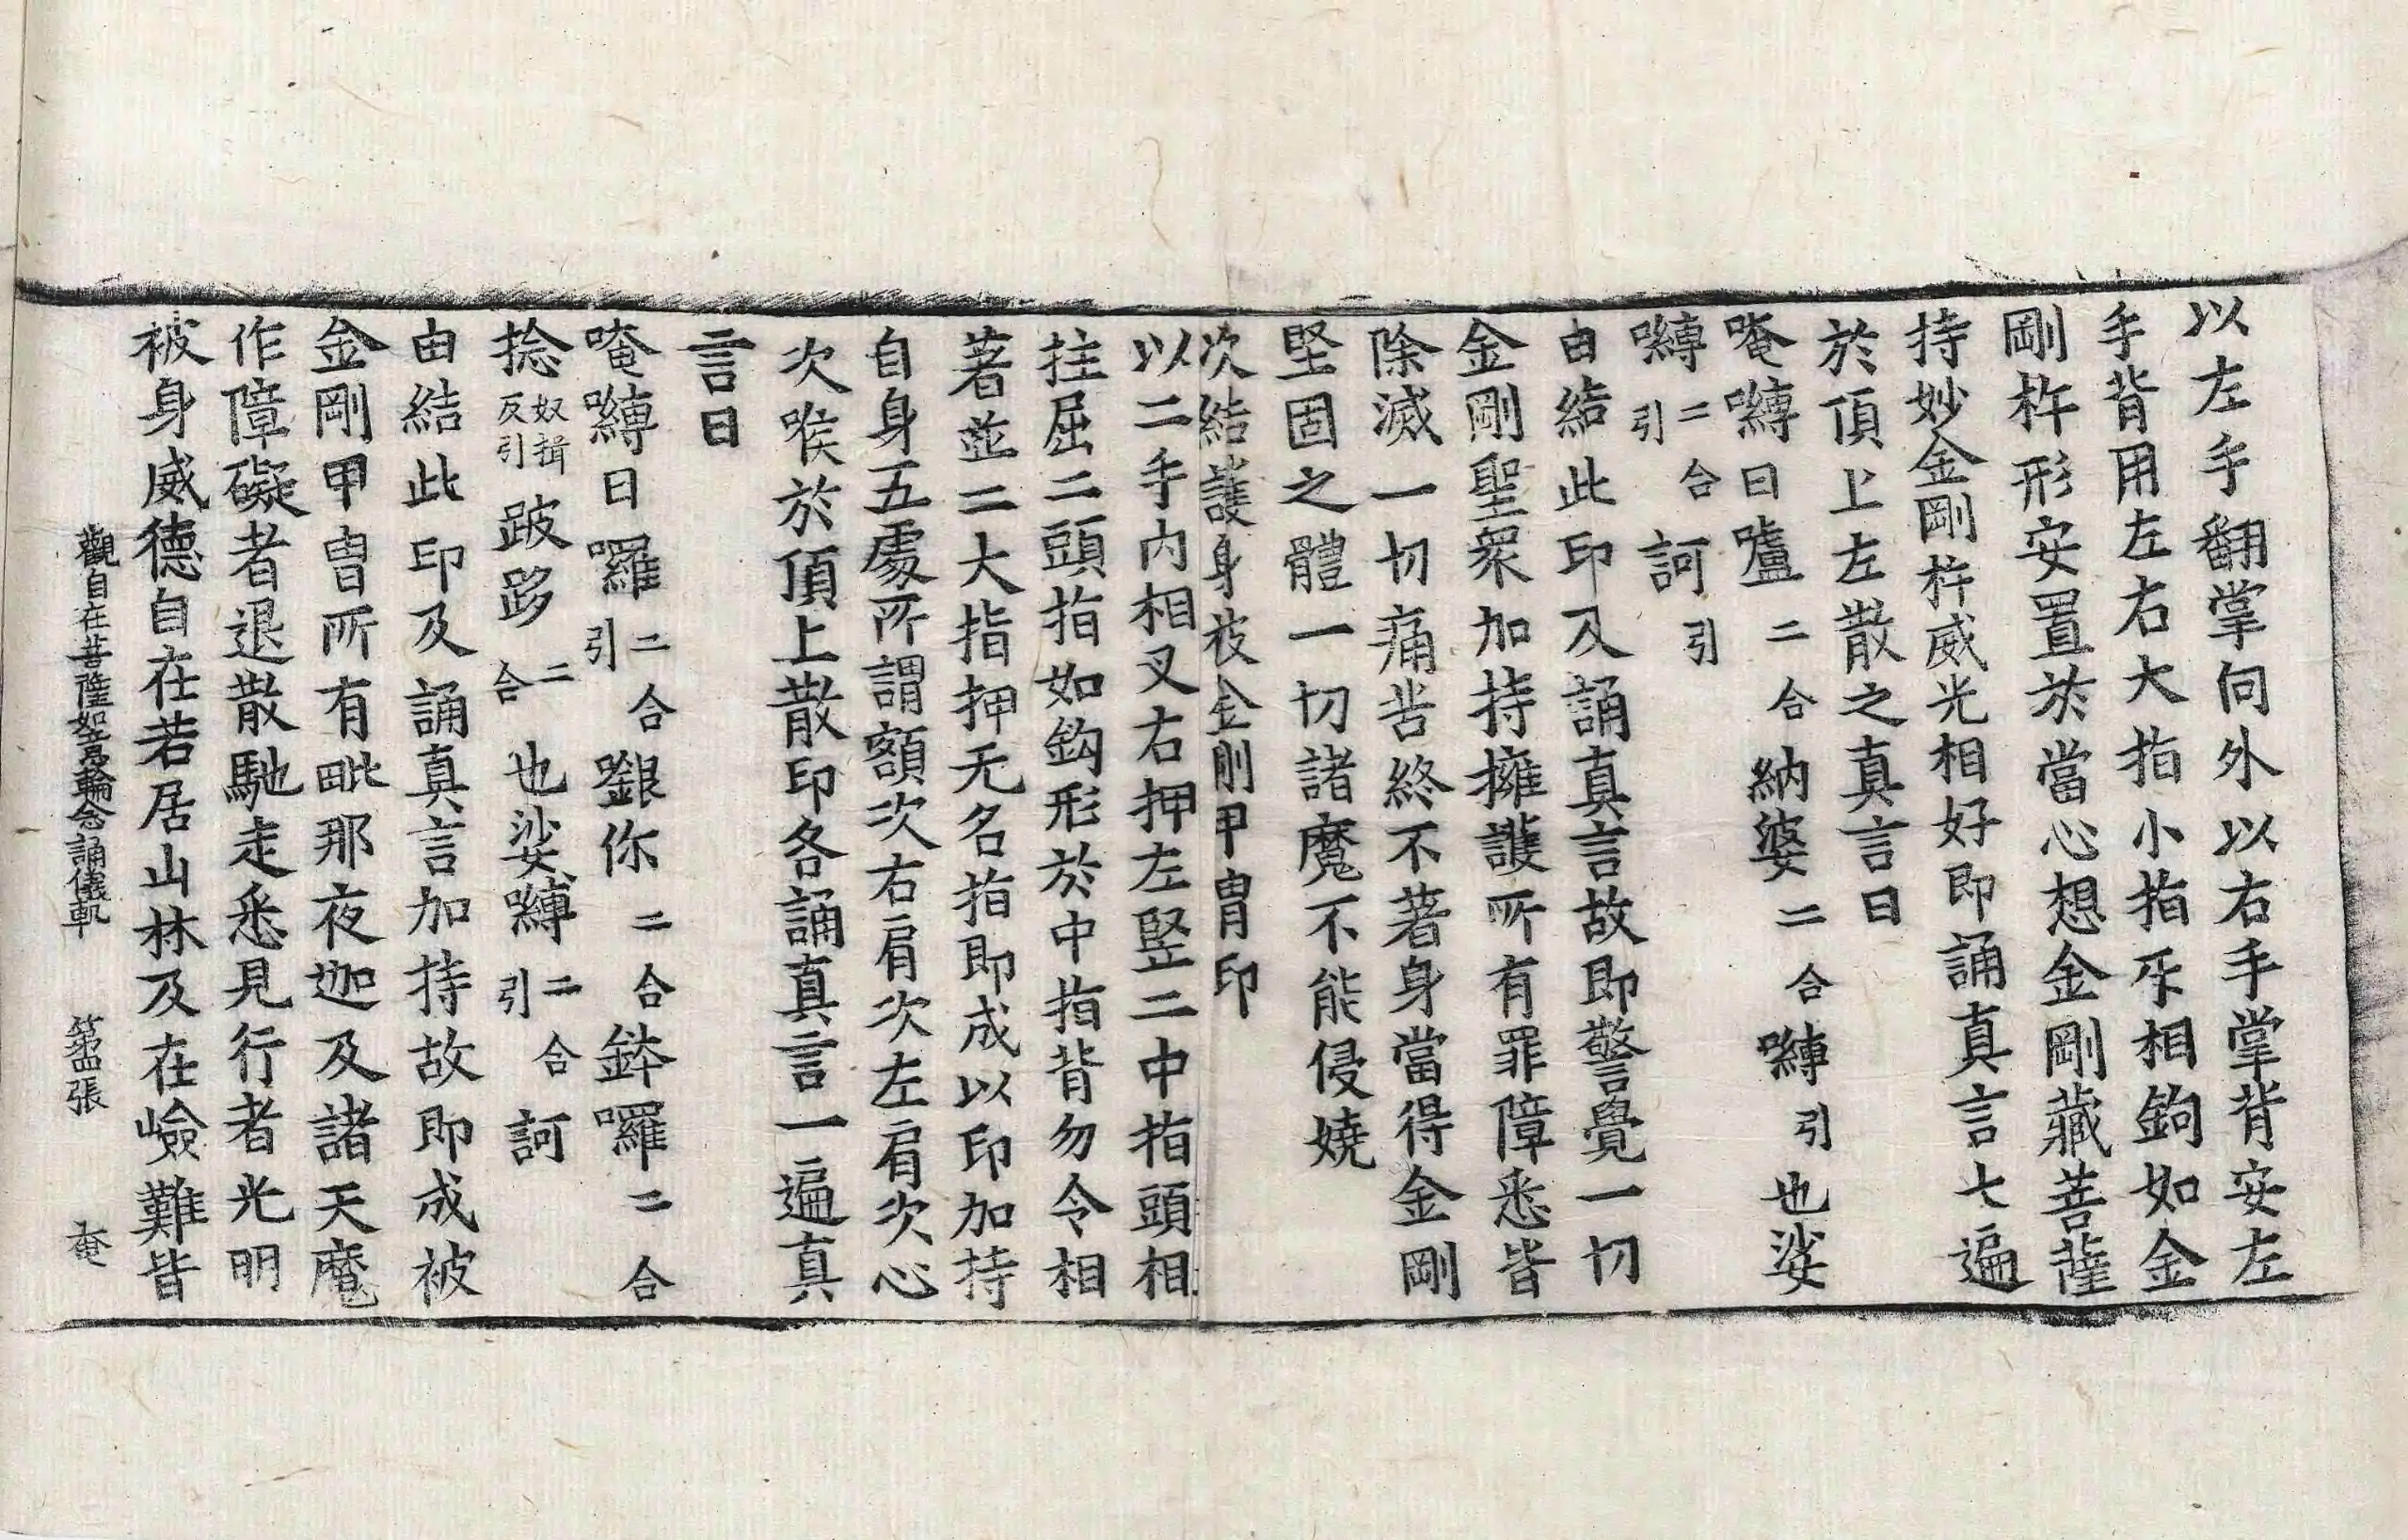 以左手翻掌向外以右手掌背安左
手背用左右大指小指㸦相鉤如金
剛杵形安置於當心想金剛藏菩薩
持妙金剛杵威光相好即誦真言七遍
於頂上左散之真言曰
唵嚩日嚧二合納婆二合嚩引也娑
嚩二合引訶引
由結此印及誦真言故即警覺一切
金剛聖衆加持擁護所有罪障悉皆
除滅一切痛苦終不著身當得金剛
堅固之體一切諸魔不能侵嬈
次結護身被金剛甲胄印
以二手內相叉右押左竪二中指頭相
拄屈二頭指如鈎形於中指背勿令相
著並二大指押无名指即成以印加持
自身五處所謂額次右肩次左肩次心
次喉於頂上散印各誦真言一遍真
言曰
唵嚩日囉二合引銀你二合鉢囉二合
捻奴揖反引跛跢二合也娑嚩二合引訶
由結此印及誦真言加持故即成被
金剛甲胄所有毗那夜迦及諸天魔
作障礙者退散馳走悉見行者光明
被身威德自在若居山林及在嶮難皆
觀自在菩薩如意輪念誦儀軌 第四張 奄